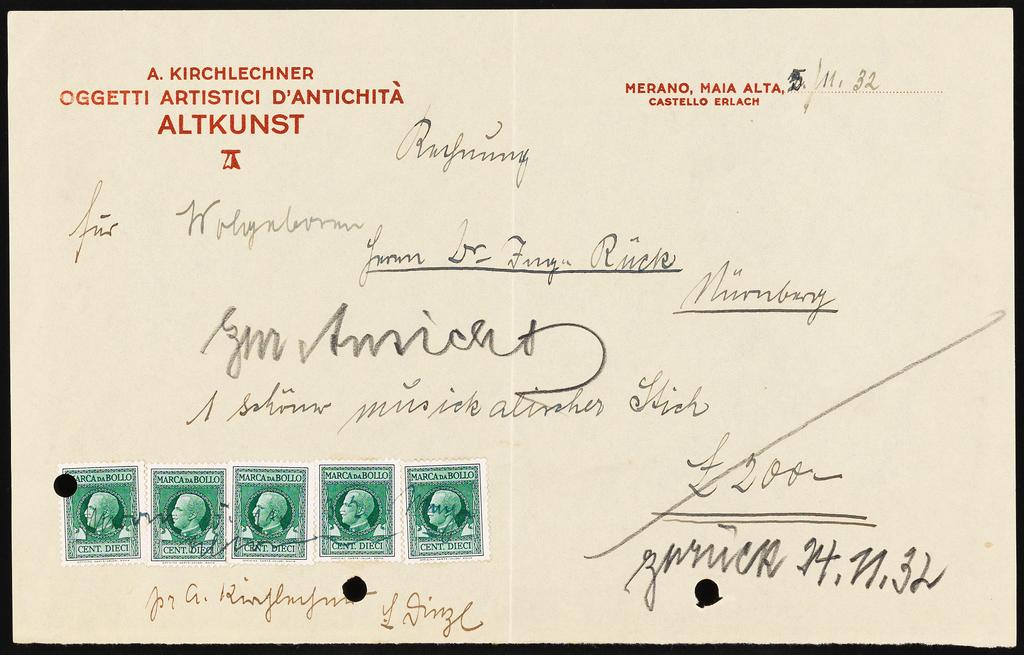 A. KIRCHLECHNER
OGGETTI ARTISTICI D'ANTICHITÀ
ALTKUNST
MERANO, MAIA ALTA, 5./11. 32
CASTELLO ERLACH
Rechnung
für Wolgeboren
Herrn Dr. Ing. Rück
Nürnberg
zur Ansicht
1 schöner musickalischer Stich
£ 200-
MARCA DA BOLLO MARCA DA BOLLO MARCA DA BOLLO MARCA DA BOLLO MARCA DA BOLLO
CENT. DIECI CENT. DIECI CENT. DIECI CENT. DIECI CENT. DIECI
zurück 24.11.32
pr A. Kirchlechner